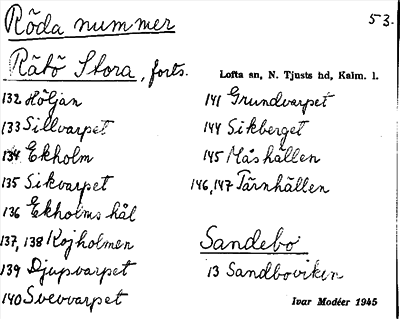 Röda nummer
53.
Rätö Stora, forts.
Lofta sn, N. Tjusts hd, Kalm. l.
132 Höljan
133 Sillvarpet
134 Ekholm
135 Sikvarpet
136 Ekholms hål
137, 138 Kojholmen
139 Djupvarpet
140 Svevvarpet
141 Grundvarpet
144 Sikberget
145 Måshällen
146, 147 Tärnhällen
Sandebo
13 Sandboviken
Ivar Modéer 1945